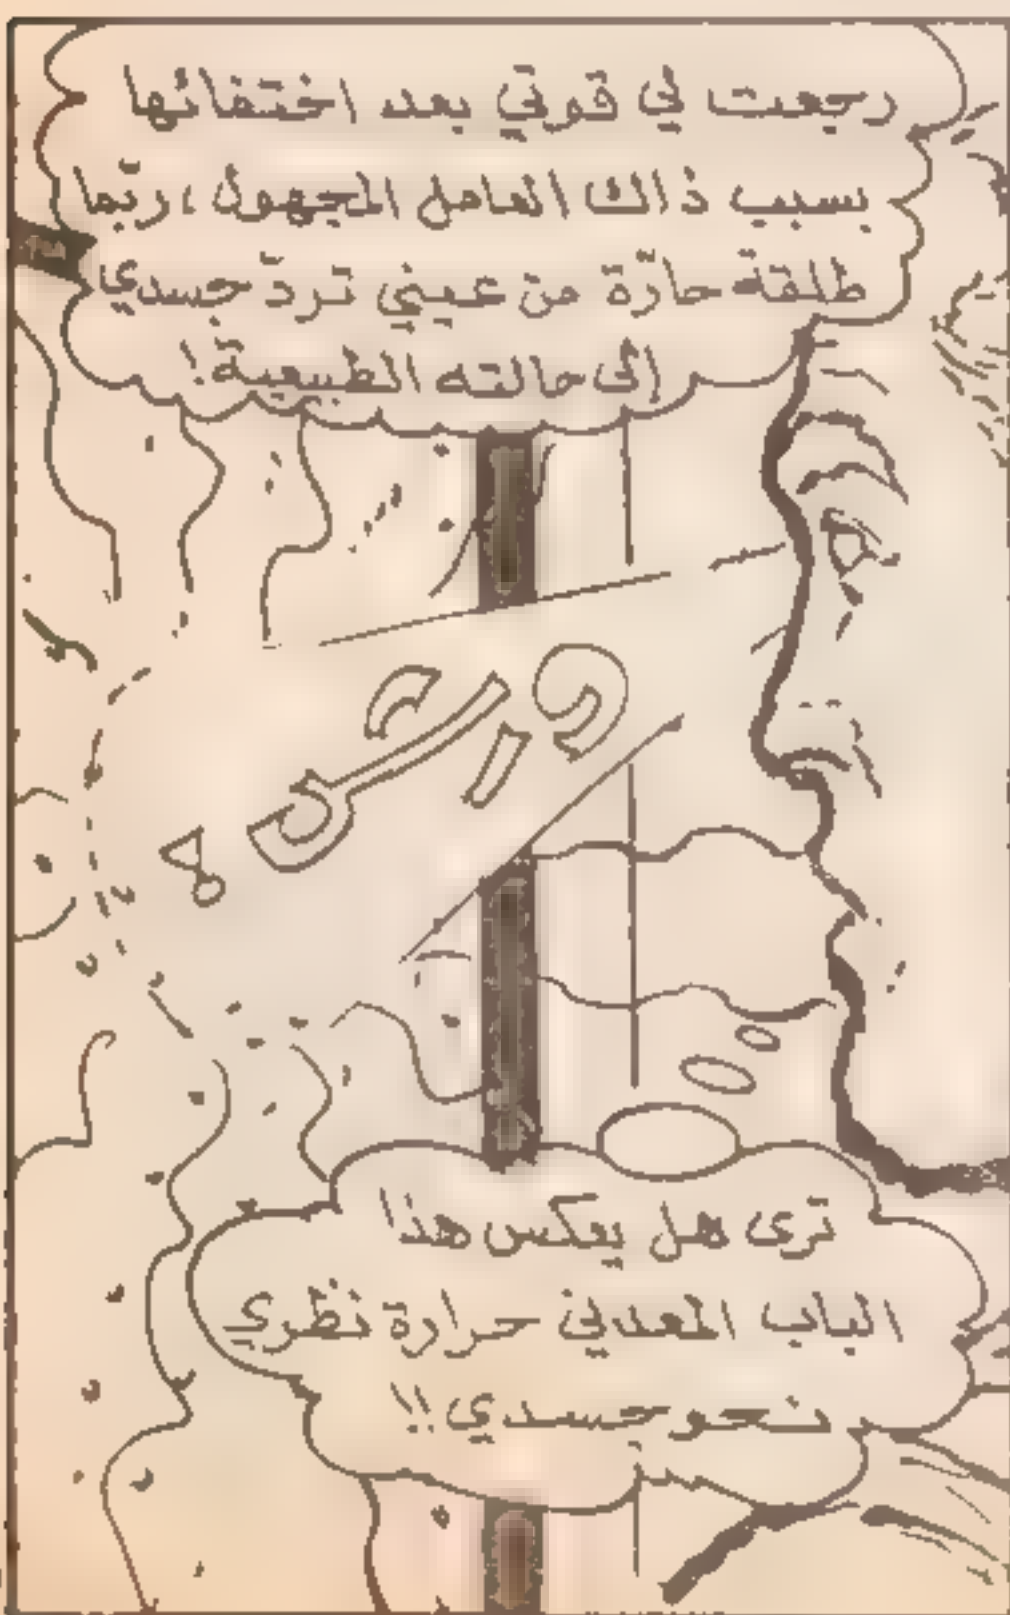 رجعت لي قوتي بعد اختفائها
بسبب ذاك العامل المجهول ، ربّما
طلقة حارّة من عيني تردّ جسدي
إلى حالته الطبيعية !
ورش !
ترى هل يعكس هذا
الباب المعدني حرارة نظري
نحو جسدي !!